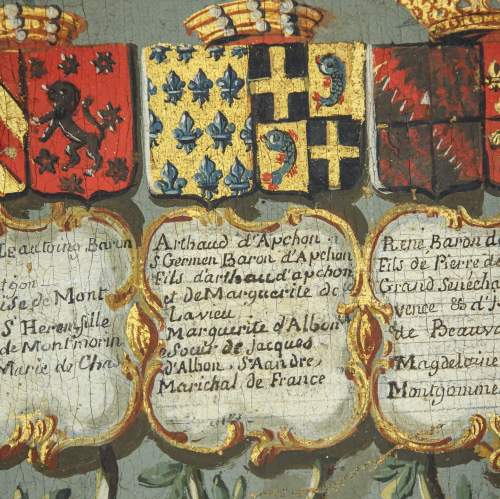 Baron
tgon
ise de Mont
St Heren fille
de Montmorin
Marie de Chas
Arthaud d'Apchon
St Germen Baron d'Apchon
Fils d'arthaud d'apchon
et de Marguerite de
Lavieu
Marguerite d'Albon
Soeur de Jacques
d'Albon St Andre
Marichal de France
René Baron de
Fils de Pierre de
Grand Senécha
vence et d'
de Beauv
Magdeleine
Montgomme